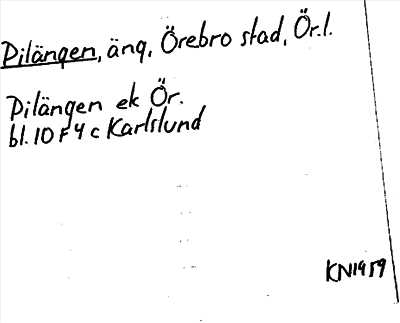 Pilängen, äng, Örebro stad, Ör.l.
Pilängen ek Ör.
bl. 10 F 4 c Karlslund
KN1959